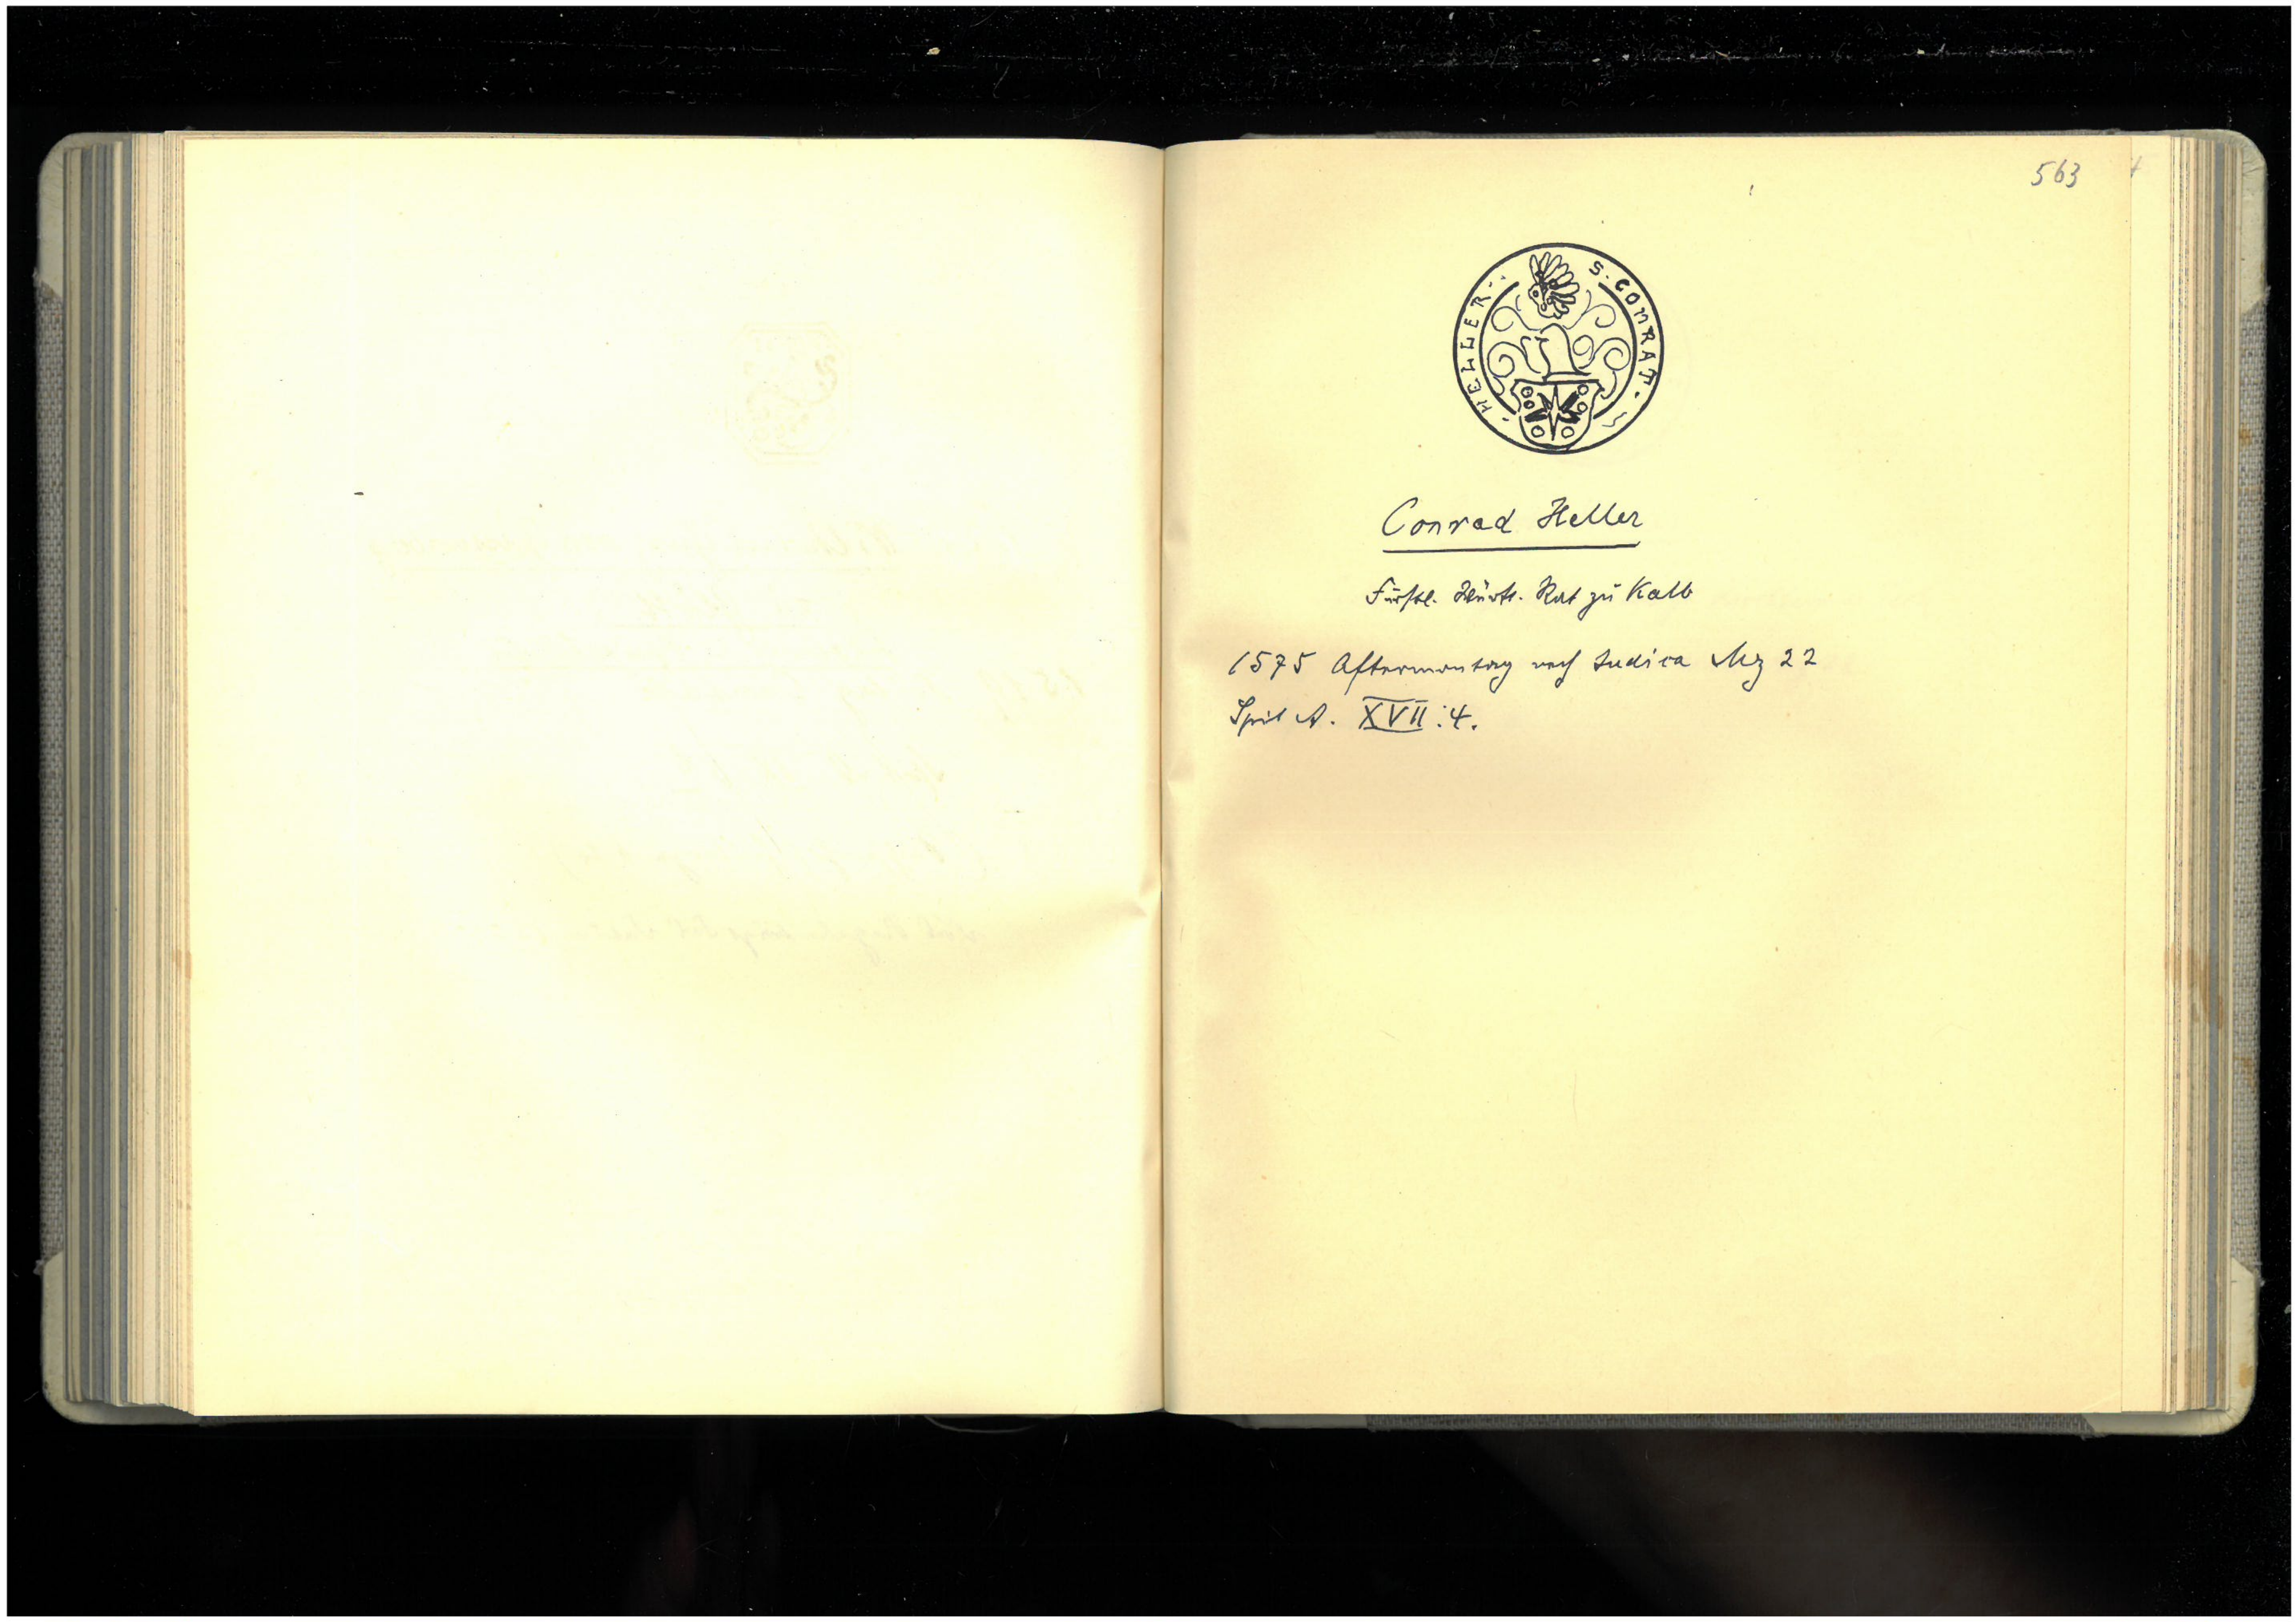 563
S. CONRAT. HELLER.
Conrad Heller
Fürstl. Württ. Rat zu Kalb
1575 Aftermontag nach Judica Mz 22
Spit A. XVII:4.